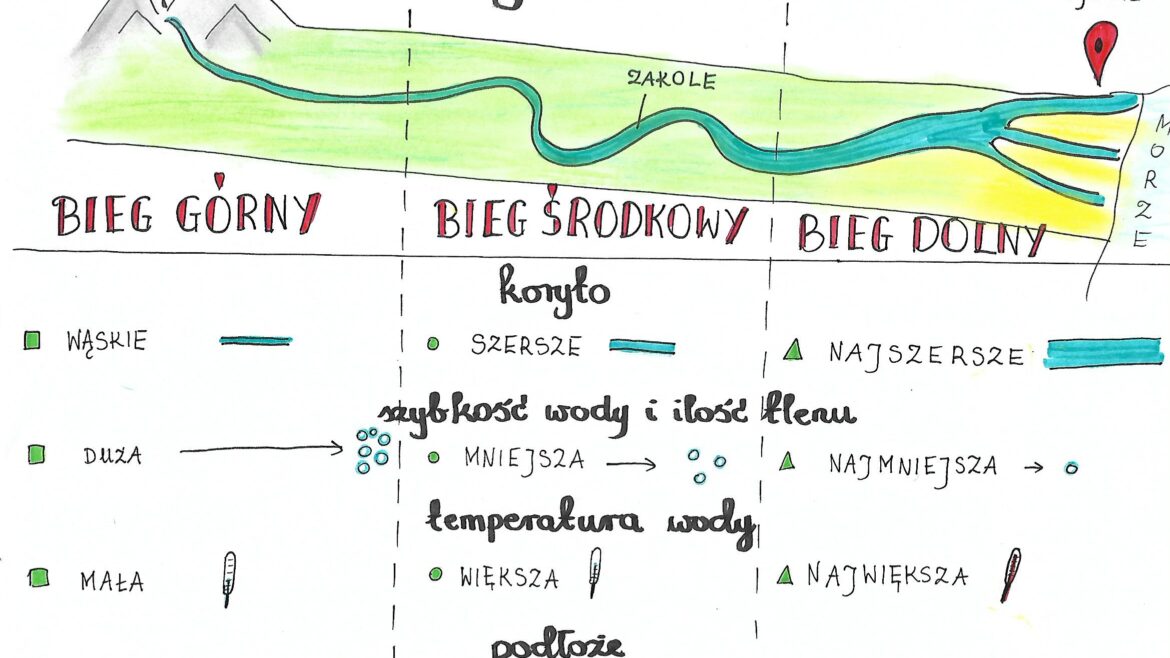 ZAKOLE
MORZE
BIEG GÓRNY BIEG ŚRODKOWY BIEG DOLNY
koryto
WĄSKIE SZERSZE NAJSZERSZE
szybkość wody i ilość tlenu
DUŻA MNIEJSZA NAJMNIEJSZA
temperatura wody
MAŁA WIĘKSZA NAJWIĘKSZA
podłoże